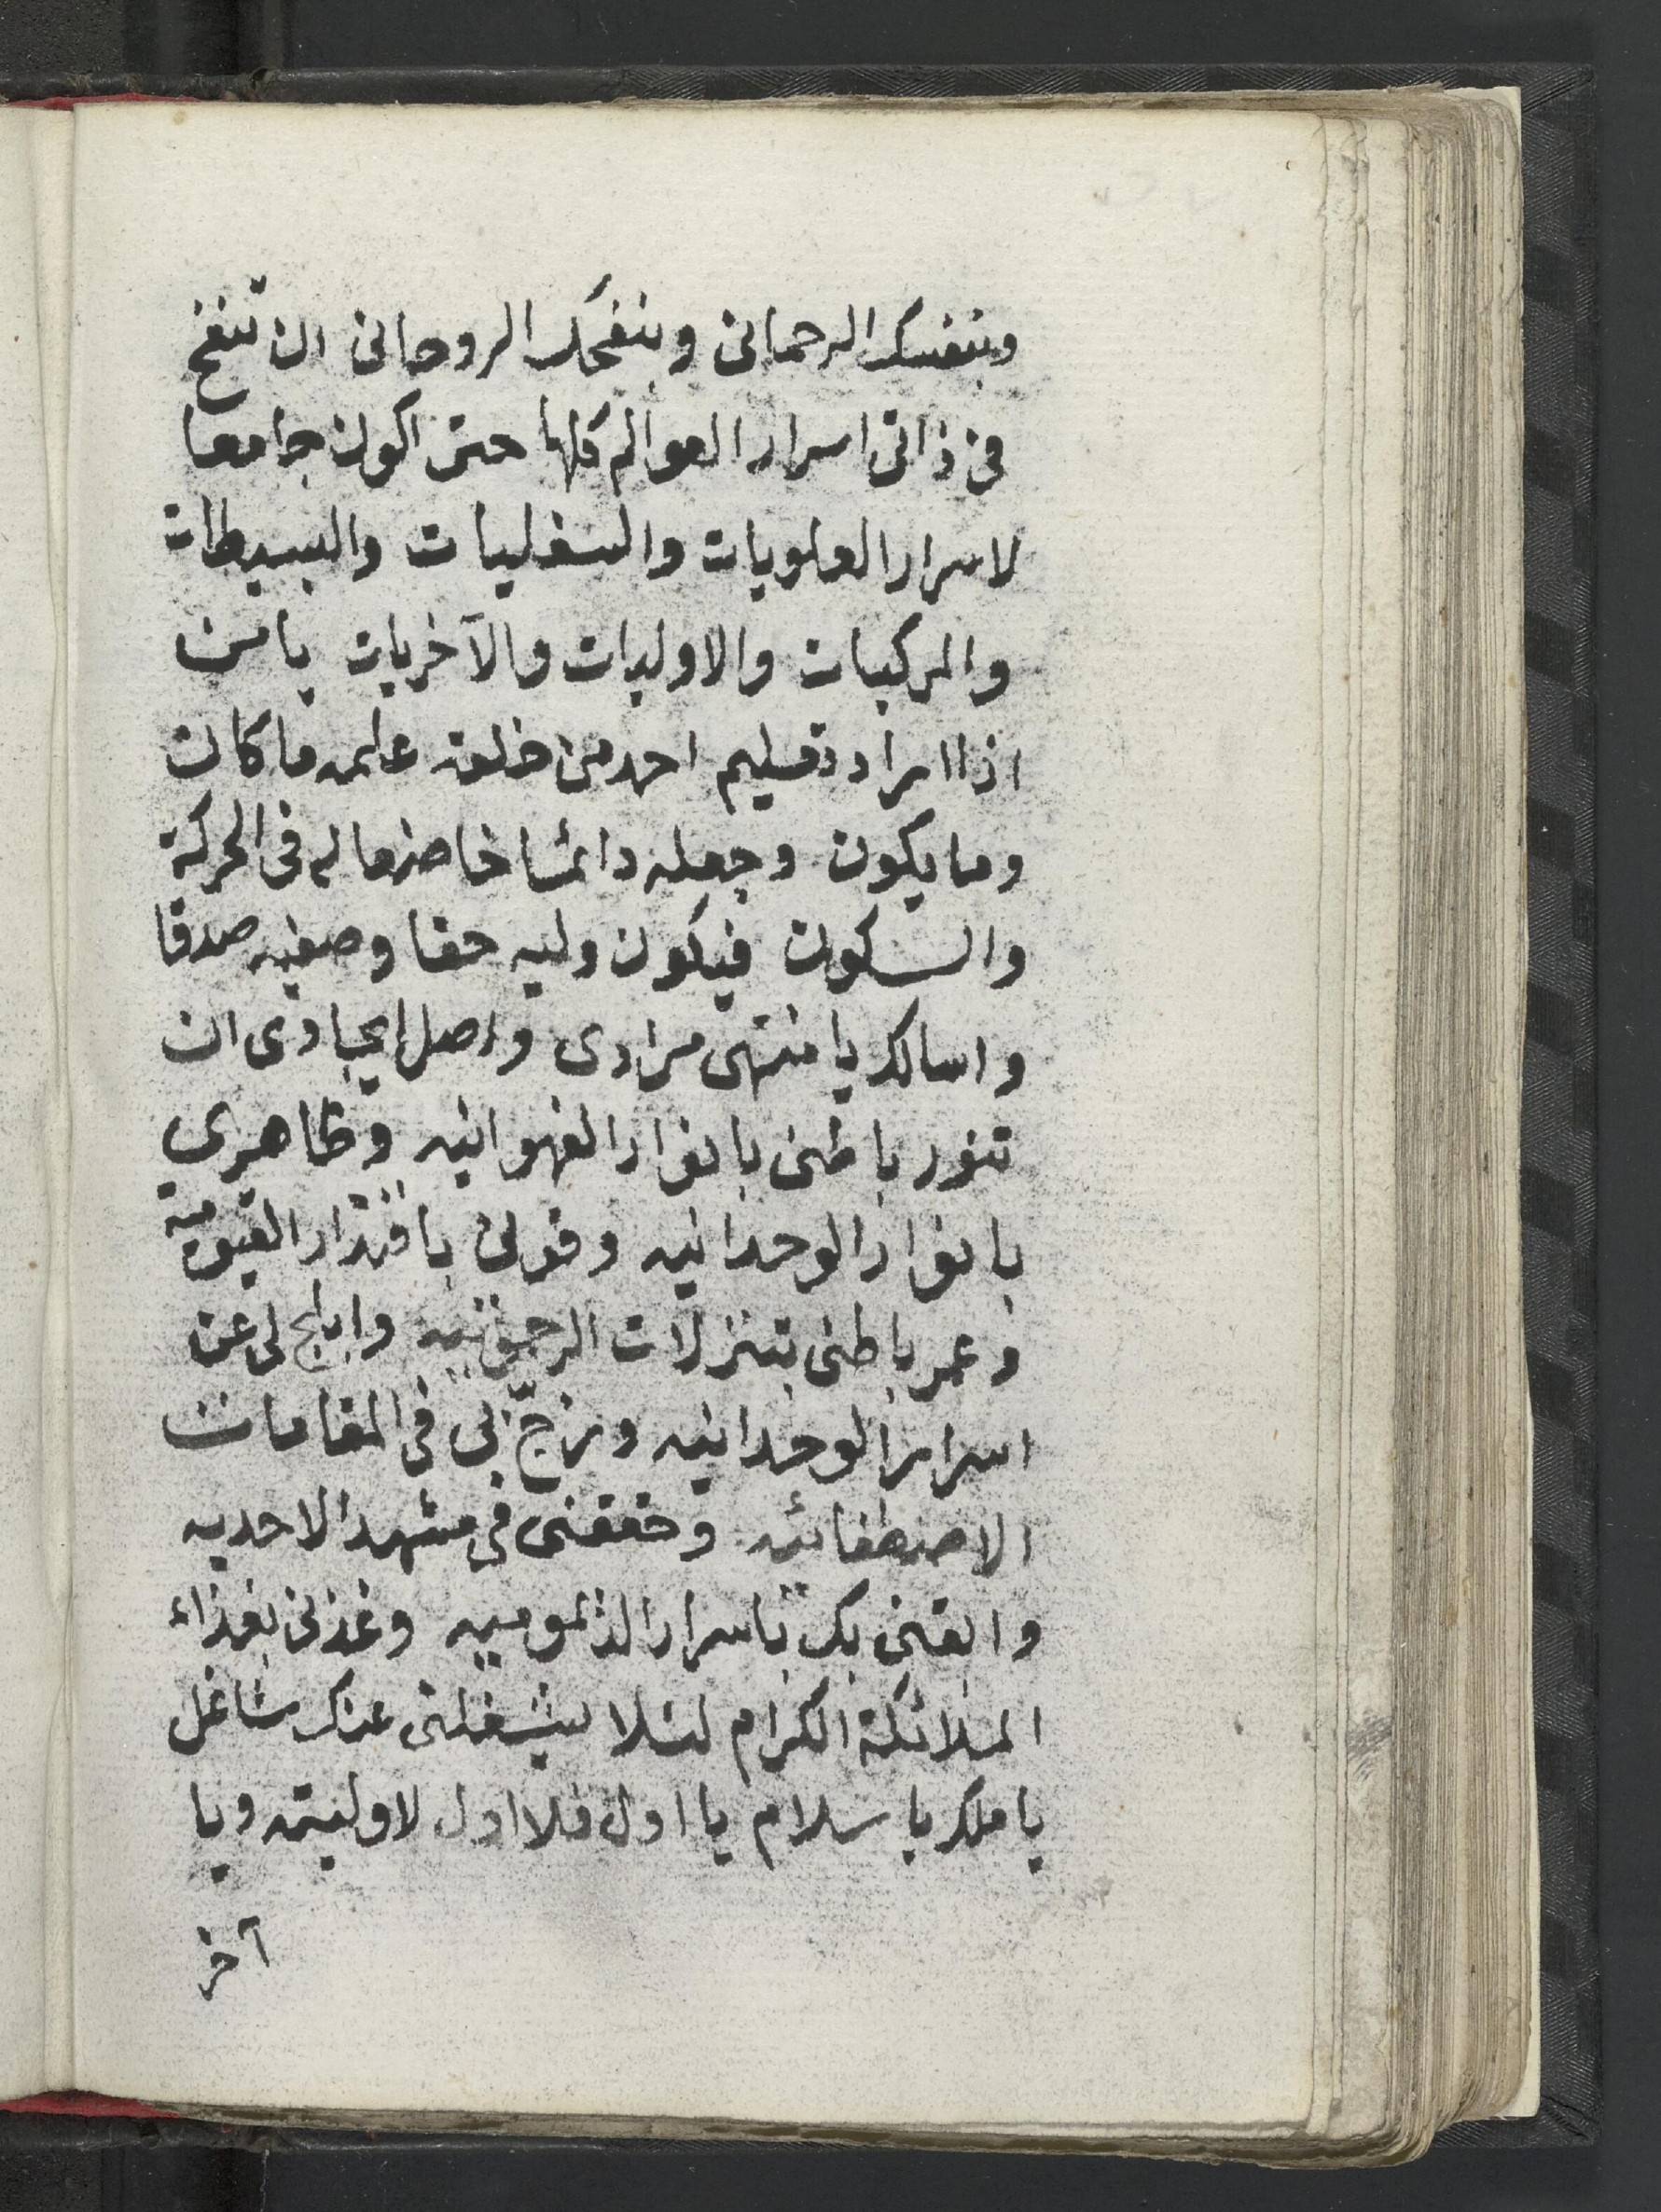 وبنفسك الرحمانى وبنفحك الروحانى ان تنفخ
فى ذاتى اسرار العوالم كلها حتى اكون جامعا
لاسرار العلويات والسفليات والبسيطات
والمركبات والاوليات والآخريات يا من
اذا اراد تعليم احد من خلقه علمه ما كان
وما يكون وجعله دائما خاضعا له فى الحركة
والسكون فيكون وليه حقا وصفيه صدقا
واسالك يا منتهى مرادى واصل ايجادى ان
تنور باطنى بانوار الفهوانيه وظاهري
بانوار الوحدانيه وقولى باقتدار القيومية
وعمر باطنى بتنزلات الرحموتيه وابلج لى عن
اسرار الوحدانيه وزجّ بى فى المقامات
الاصطفائيه وحققنى فى مشهد الاحديه
وابقنى بك باسرار الديموميه وغذنى بغذاء
الملائكة الكرام لئلا يشغلنى عنك شاغل
يا ملك يا سلام يا اول فلا اول لاوليته ويا
آخر